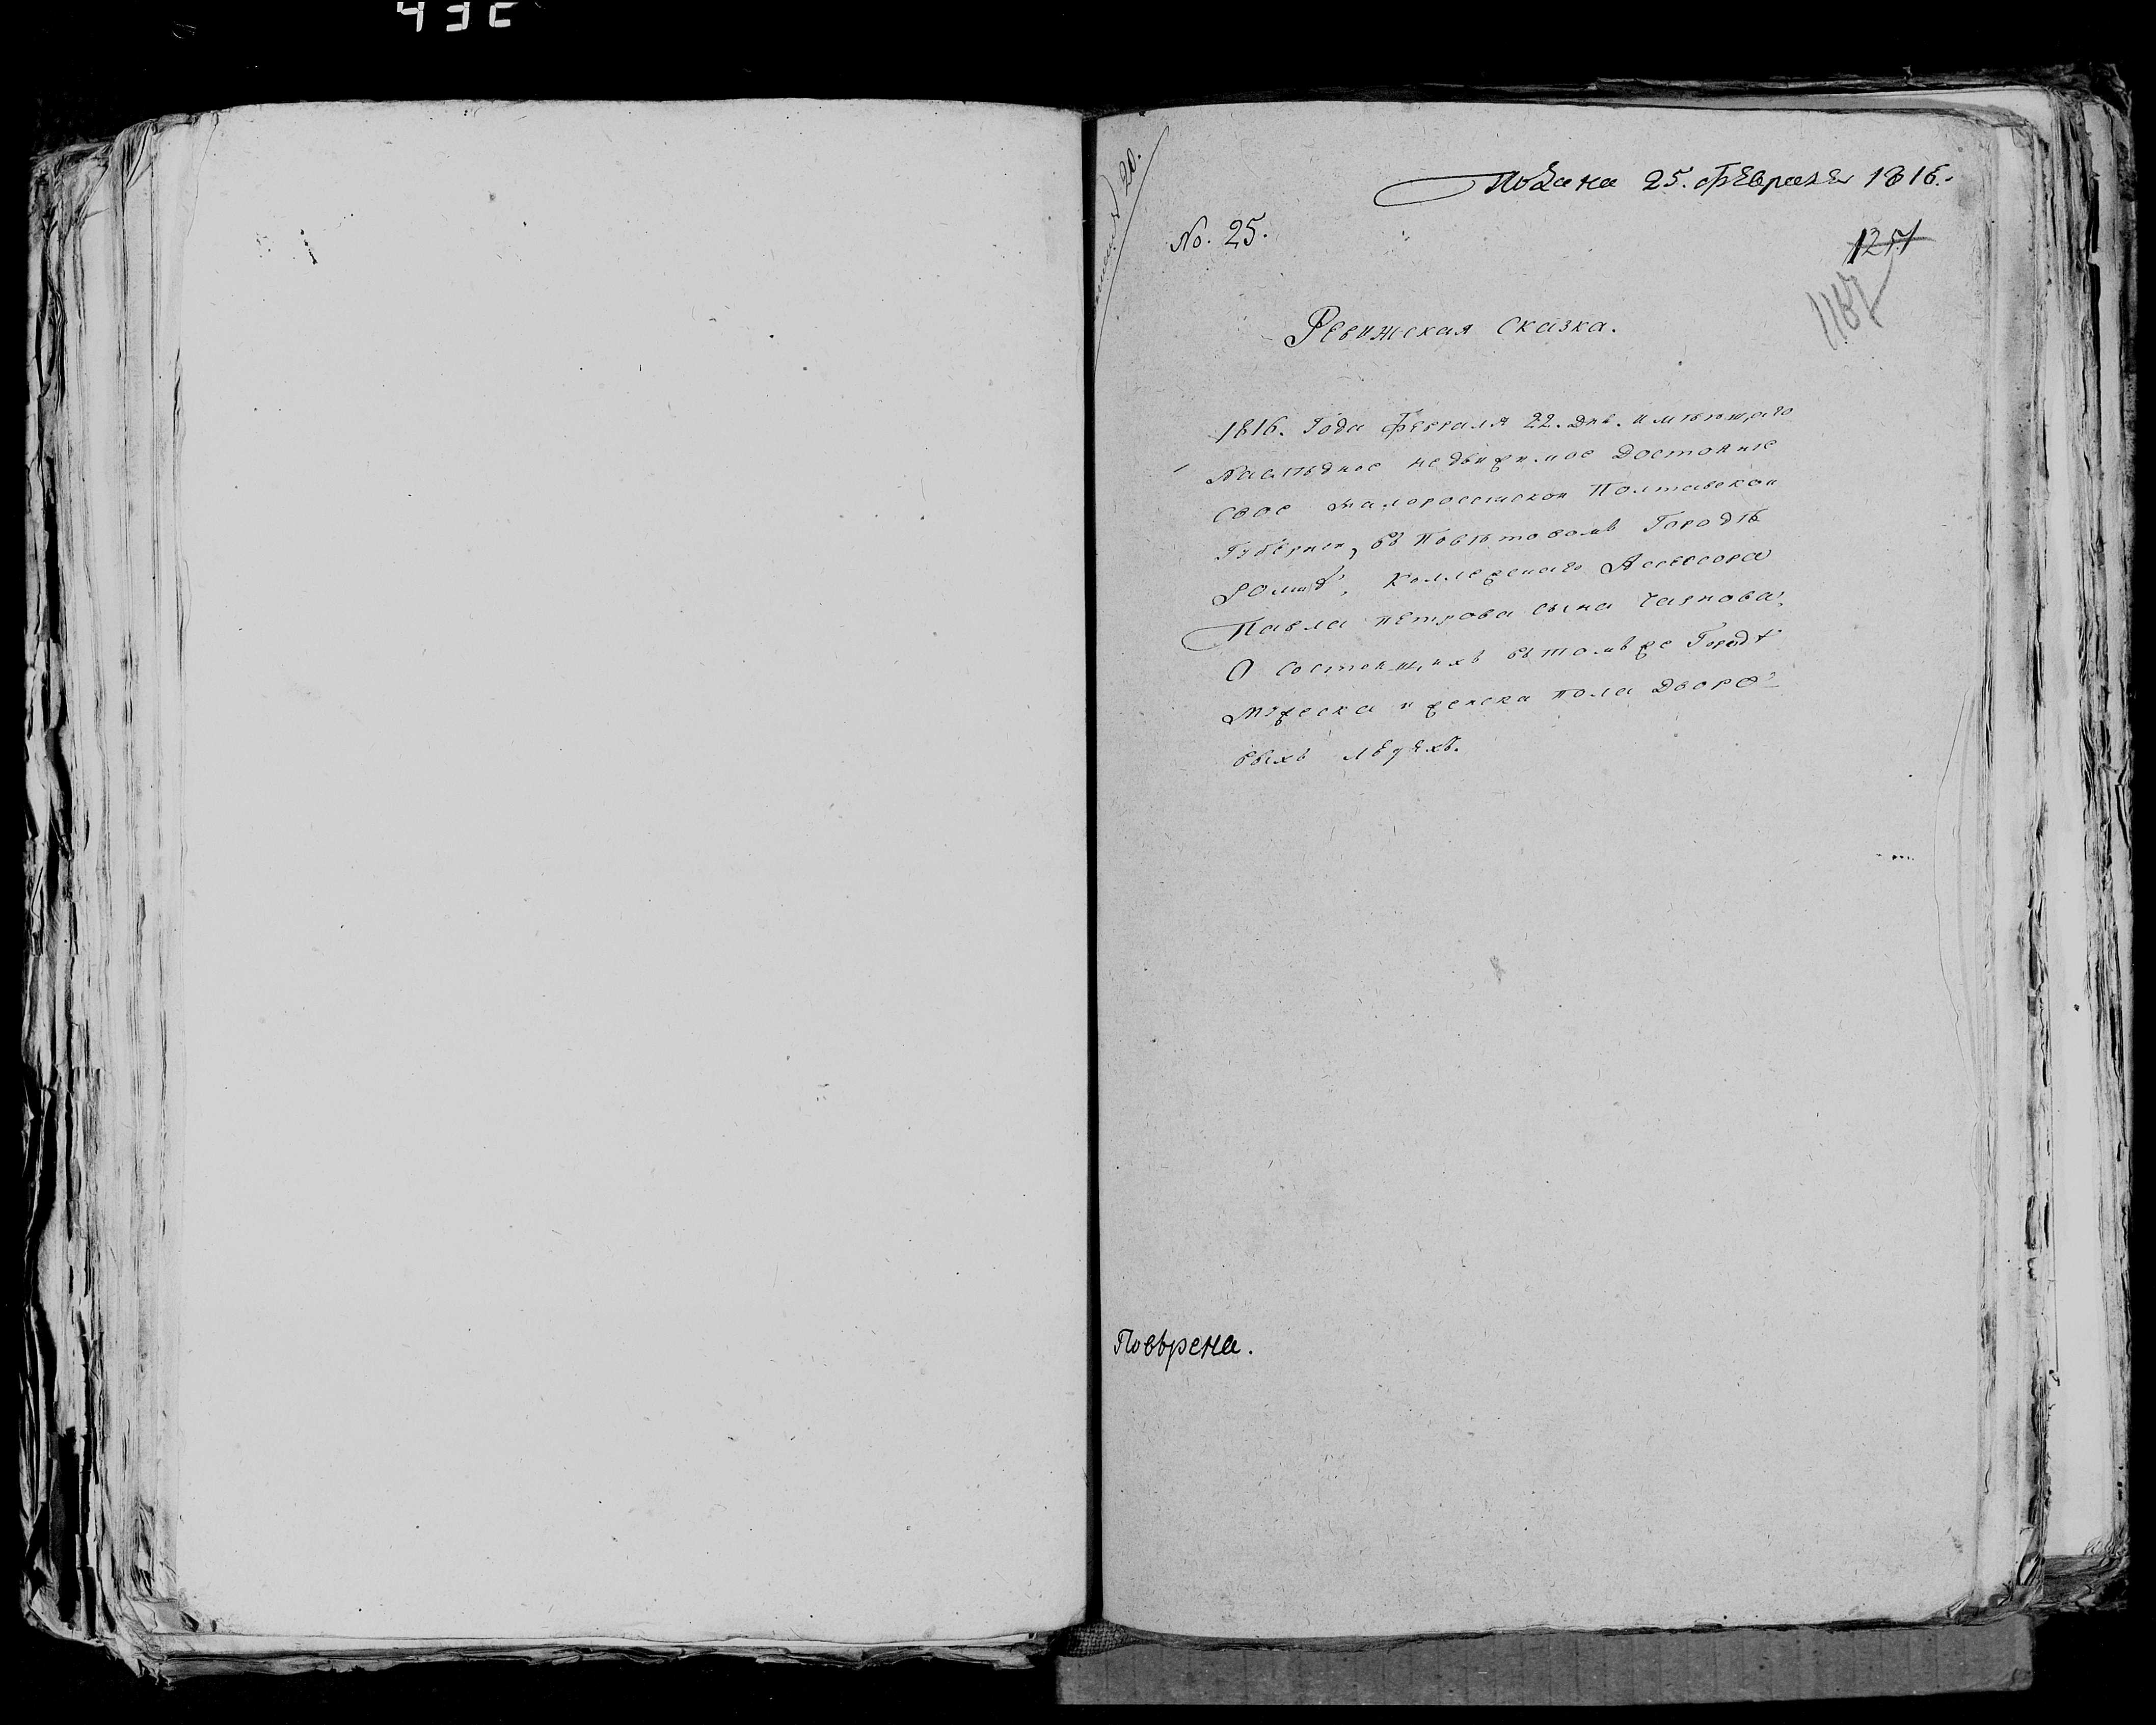 Подана 25. Февраля 1816.
20.
No. 25.
1251
1187
Ревижская сказка.
1816. Года Февраля 22. дня. имѣющаго
Наслѣдное недвижимое Достояние
свое малоросссиской Полтавской
Губернии, въ Повѣтовомъ Городѣ
Ромнѣ, Коллежскаго Ассессора
Павла Петрова сына
О состоящихъ въ томъ же Городѣ
мужеска и женска пола Дворо-
выхъ людехъ.
Повѣрена.